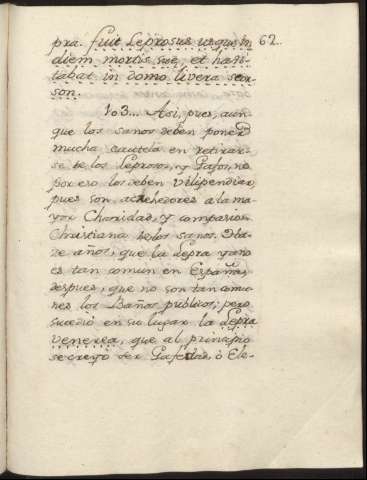 pra. fuit Leprosus usque in 62.
diem mortis suę, et habi-
tabat in domo livera seor-
son.
103... Asi, pues, aun-
que los sanos deben poner
mucha cautela en retirar-
se de los Leprosos, y Gafos, no
por eso los deben vilipendiar,
pues son acrehedores a la ma-
yor Charidad, y compasion
Christiana de los sanos. Ha-
ze años, que la Lepra ya no
es tan comun en España,
despues, que no son tan comu-
nes los Baños publicos; pero
sucedió en su lugar la Lepra
venerea, que al principio
se creyo ser Gafedad, ò Ele-